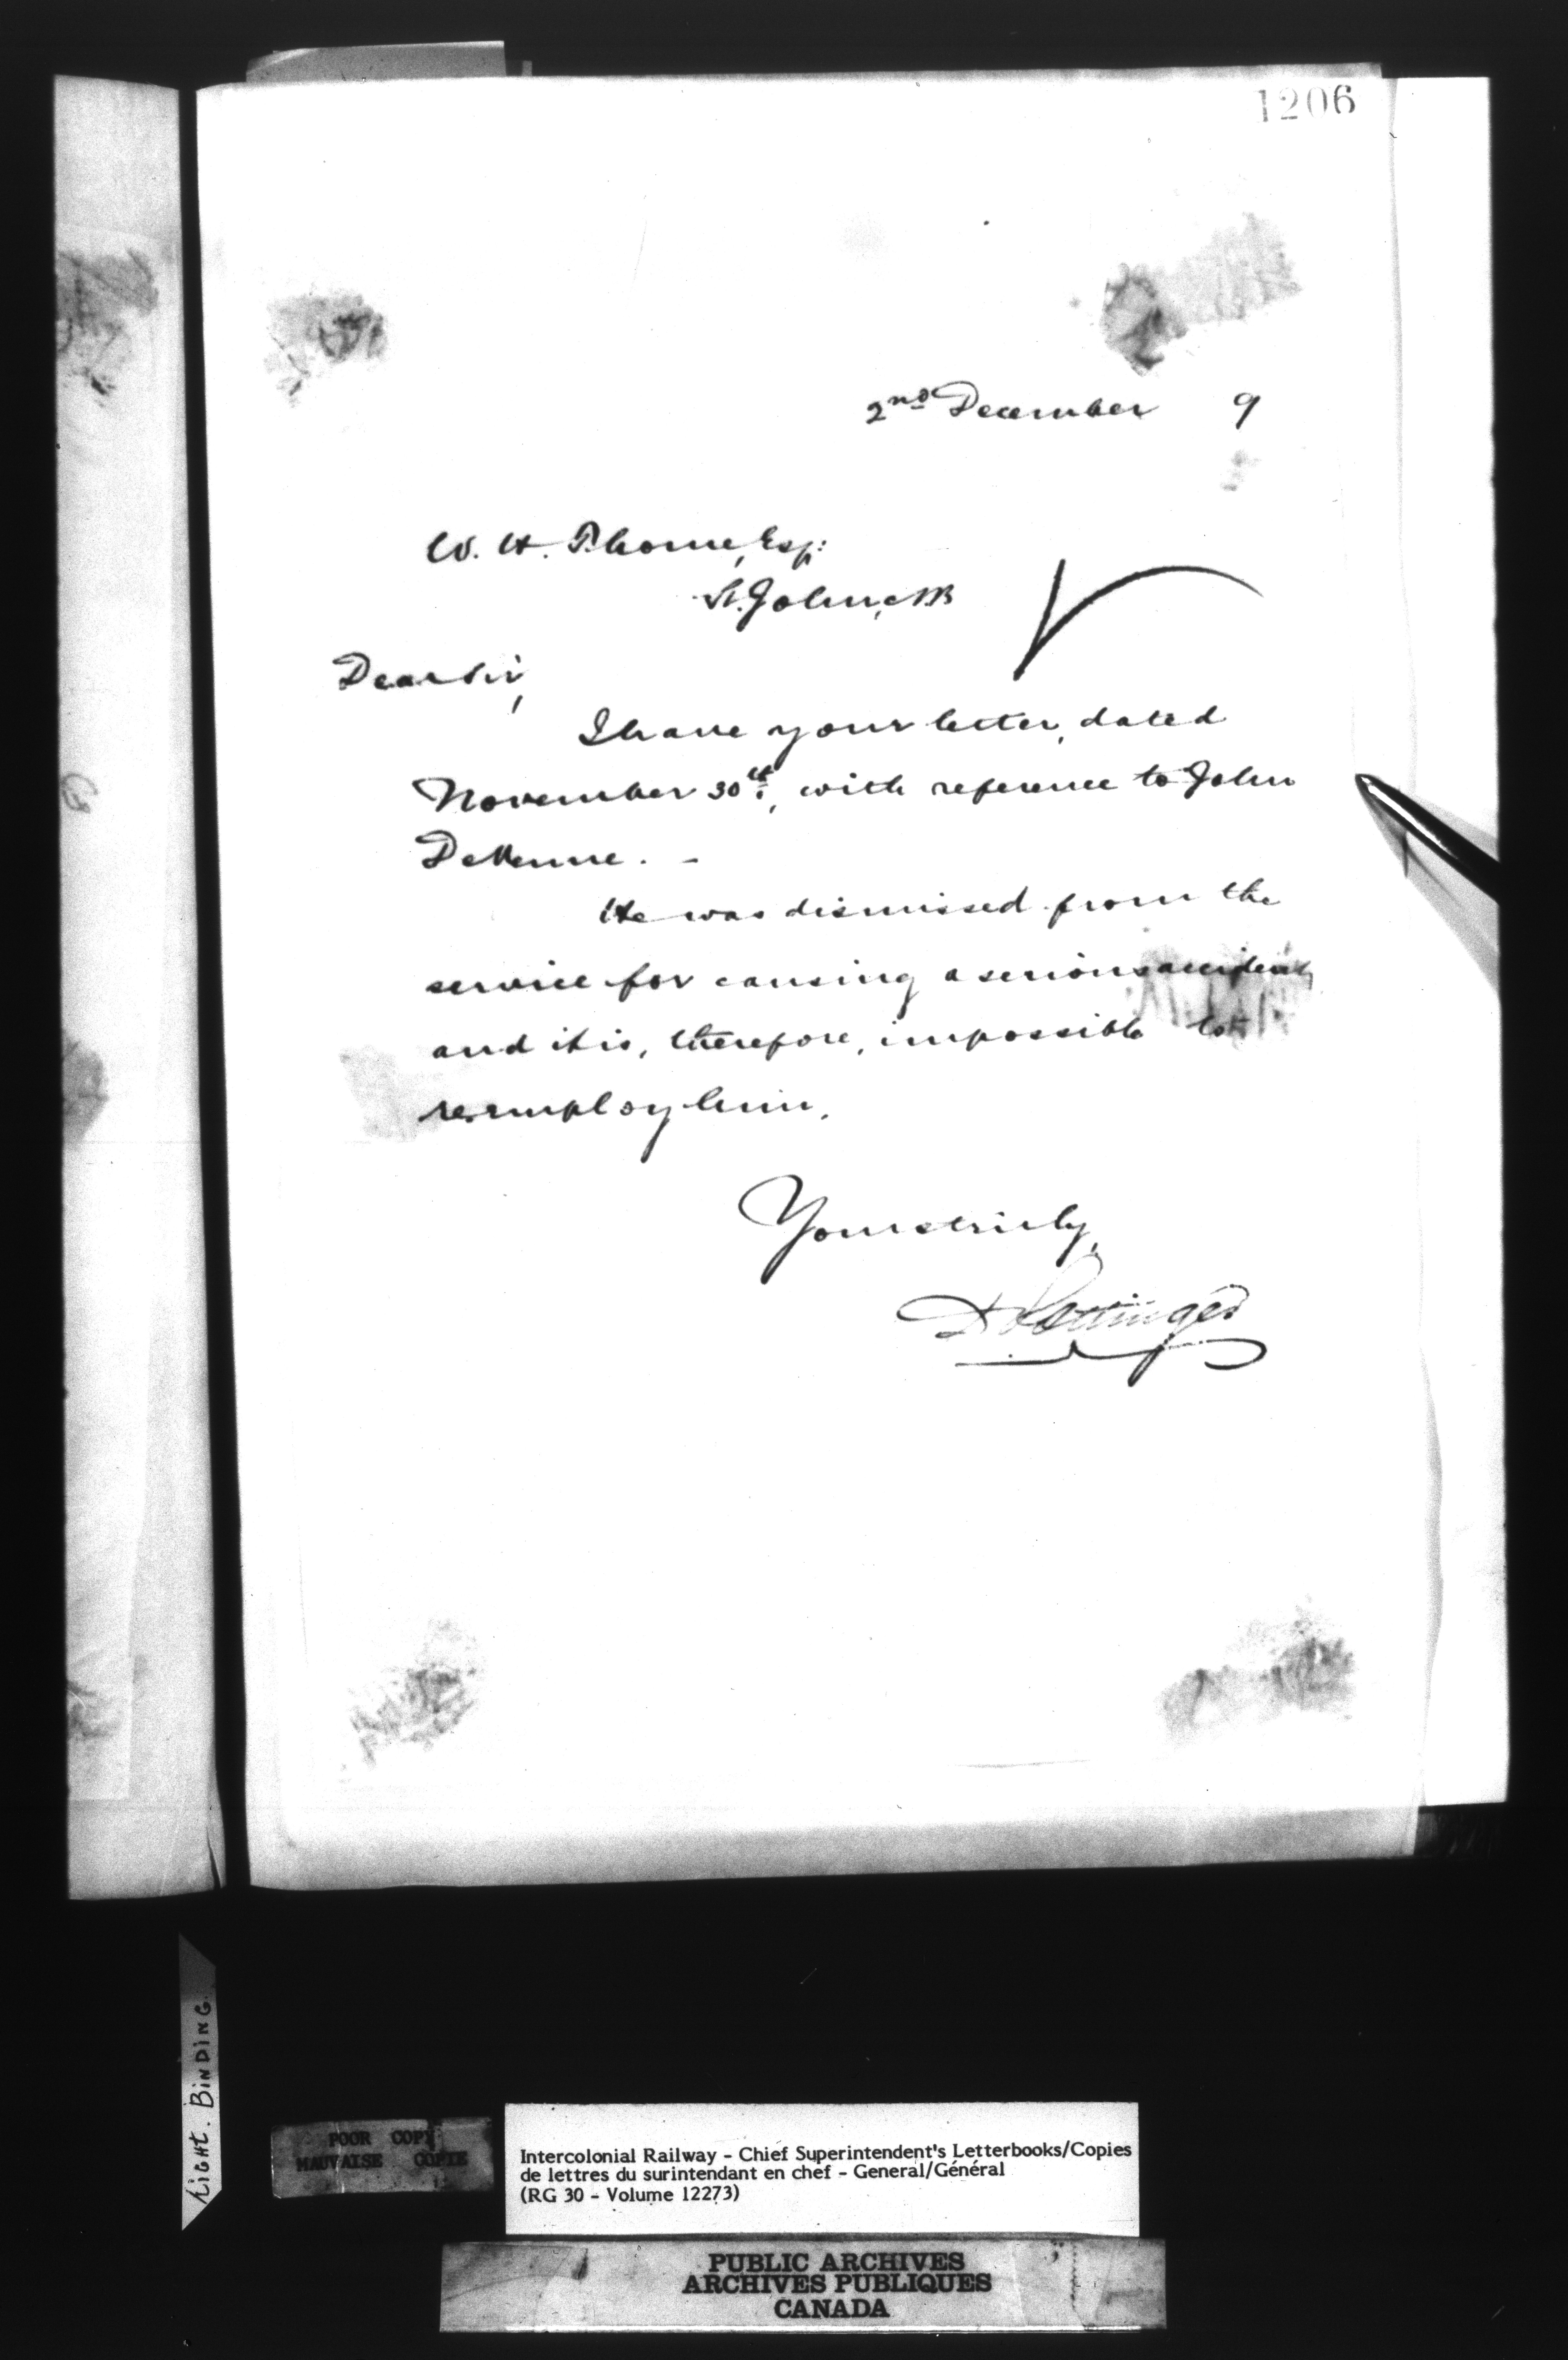 1206
2nd December 9
W. H. Thorne, Esq:
St. John, NB
Dear Sir,
I have your letter, dated
November 30th, with reference to John
DeVenne. -
He was dismissed from the
service for causing a serious accident
and it is, therefore, impossible to
re-employ him.
Yours truly,
D Pottinger
TIGHT. BINDING.
POOR COPY
MAUVAISE COPIE
Intercolonial Railway - Chief Superintendent's Letterbooks/Copies
de lettres du surintendant en chef - General/Général
(RG 30 - Volume 12273)
PUBLIC ARCHIVES
ARCHIVES PUBLIQUES
CANADA